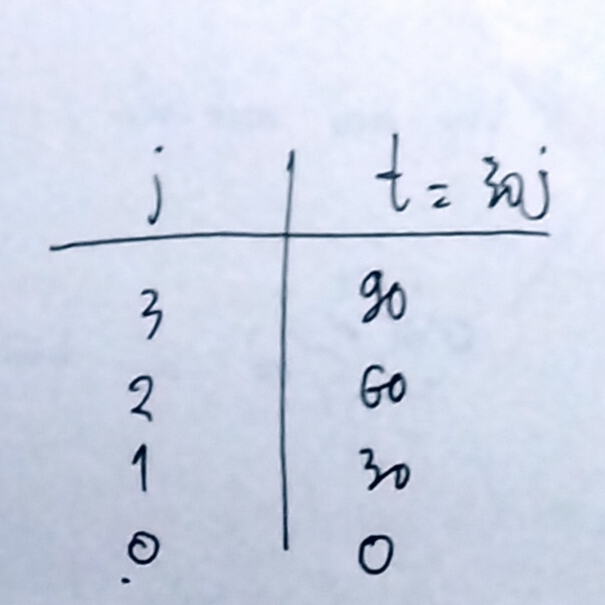 j t = 30j
3 90
2 60
1 30
0 0